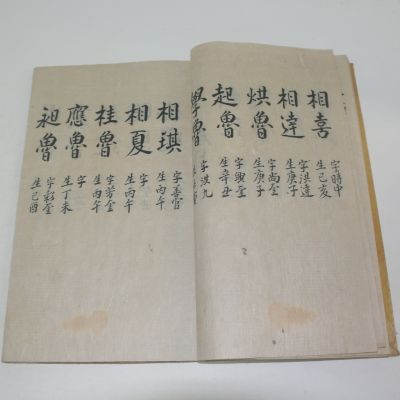 相喜 字時中 生己亥
相達 字洪達 生庚子
烘魯 字尚奎 生庚子
起魯 字興奎 生辛丑
學魯 字洪九
相琪 字善官 生丙午
相夏 字 生丙午
桂魯 字芳奎 生丙午
應魯 字 生丁未
昶魯 字彩奎 生己酉